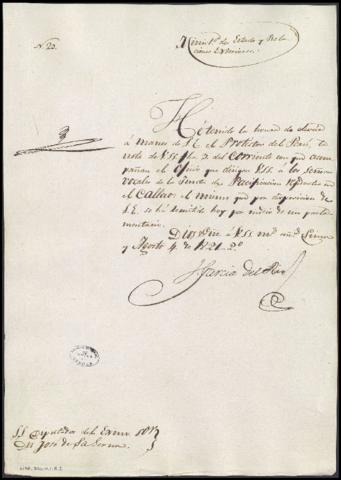 N. 20.
Minist.o de Estado y Rela-
ciones Exteriores.
He tenido la honra de elevar
á manos de S.E. el Protector del Perú, la
nota de V.SS. fha 2. del corriente con que acom-
pañan el oficio que dirigen V.SS. á los señores
vocales de la Junta de Pacificacion
el Callao; el mismo que por disposicion de
S.E. se há remitido hoy por medio de un parla-
mentario.
Dios gue á V.SS. ms. añs. Lima
y Agosto 4. de 1821. 2.o
J. Garcia del Rio
S.S. Diputados del Exmo Sor
Dn José de La Serna.